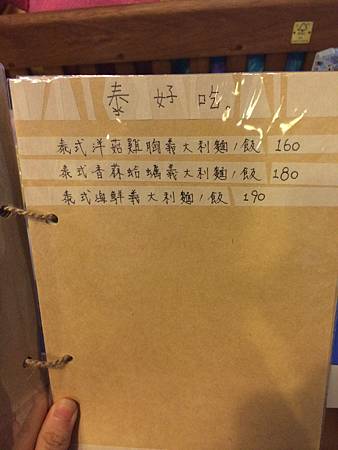 泰好吃。
泰式洋菇雞胸義大利麵/飯 160
泰式香蒜蛤蠣義大利麵/飯 180
泰式海鮮義大利麵/飯 190